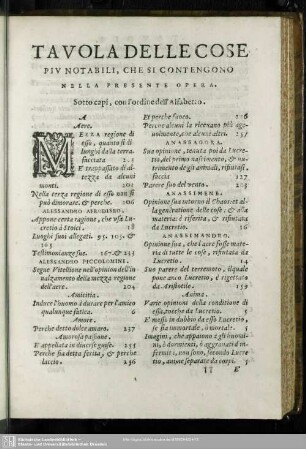 TAVOLA DELLE COSE
PIV NOTABILI, CHE SI CONTENGONO
NELLA PRESENTE OPERA.
Sotto capi, con l'ordine dell'Alfabetto.
A
Aere.
MEZZA regione di
esso, quanto si di
lunghi dalla terra.
facciata 215
E' trapassato di al-
tezza da alcuni
monti. 201
Nella terza regione di esso non si
può dimorare. & perche. 206
ALESSANDRO AFRODISEO.
Appone certa ragione, che usa Lu-
cretio à Stoici. 18
Luoghi suoi allegati. 95. 103. &
105
Testimonianze sue. 167. & 245
ALESSANDRO PICCOLOMINI.
Segue Vitellione nell'opinione dell'in
nalzamento della mezza regione
dell'aere. 204
Amicitia.
Induce l'huomo à durare per l'amico
qualunque fatica. 6
Amore.
Perche detto dolce amaro. 237
Amorosa passione.
E' appellata in diverse guise. 255
Perche sia detta ferita, & perche
laccio. 256
Et perche fuoco. 256
Perche alcuni la ricevano più age
volmente, che alcuni altri. 257
ANASSAGORA.
Sua opinione, tenuta poi da Lucre
tio, del primo nascimento, & nu-
trimento de gli animali, rifiutasi,
scuccia 227
Parere suo del vento. 203
ANASSIMENE.
Opinione sua intorno il Chaos: et
alla generatione delle cose, & alla
materia: è riferita, & rifiutata
da Lucretio. 36
ANASSIMANDRO.
Opinione sua, che l'aere fosse mate-
ria di tutte le cose, rifiutata da
Lucretio.
Suo parere del terremoto, ilquale
approva anco Lucretio, è rigettato
da Aristotile. 159
Anima.
Varie opinioni della conditione di
essa, tocche da Lucretio. 5
E' messo in dubbio da esso Lucretio,
se sia immortale, ò mortale. 5
Imagini, che appaiono à gli huomi-
ni, ò dormienti, ò aggravati d'in
fermità, son sono, secondo Lucre
tio, anime separate da corpi. 5
II E'